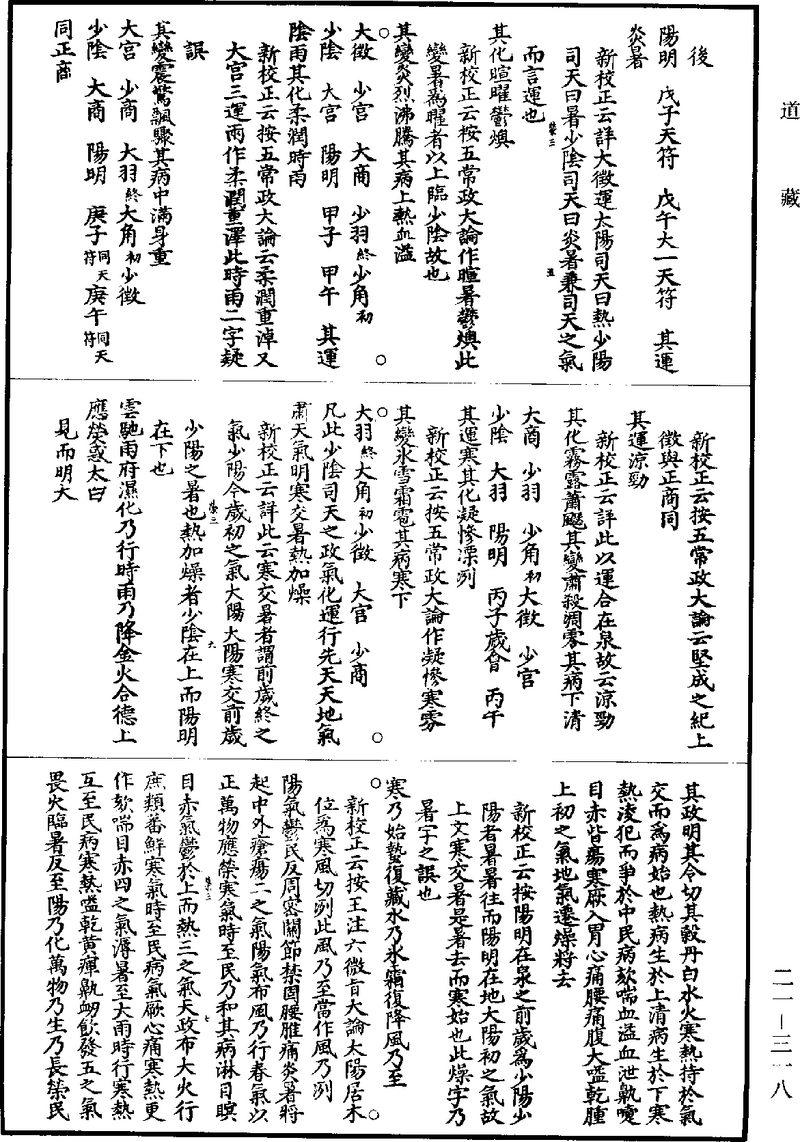 道藏
後
陽明　戊子天符　戊午太一天符　其運
炎暑
新校正云詳大徵運太陽司天曰熱少陽
司天曰暑少陰司天曰炎暑兼司天之氣
而言運也
其化暄曜鬱燠
新校正云按五常政大論作暄暑鬱燠此
變暑爲曜者以上臨少陰故也
其變炎烈沸騰其病上熱血溢
大徵　少宮　大商　少羽終　少角初
少陰　大宮　陽明　甲子　甲午　其運
陰雨其化柔潤時雨
新校正云按五常政大論云柔潤重淖又
大宮三運兩作柔潤重澤此時雨二字疑
誤
其變震驚飄驟其病中滿身重
大宮　少商　大羽終　大角初　少徵
少陰　大商　陽明　庚子同天符　庚午同天符
同正商
新校正云按五常政大論云堅成之紀上
徵與正商同
其運涼勁
新校正云詳此以運合在泉故云涼勁
其化霧露蕭飋其變肅殺凋零其病下清
大商　少羽　少角初　大徵　少宮
少陰　大羽　陽明　丙子歲會　丙午
其運寒其化凝慘凓冽
新校正云按五常政大論作凝慘寒雰
其變冰雪霜雹其病寒下
大羽終　大角初　少徵　大宮　少商
凡此少陰司天之政氣化運行先天天地氣
肅天氣明寒交暑熱加燥
新校正云詳此云寒交暑者謂前歲終之
氣少陽今歲初之氣太陽太陽寒交前歲
少陽之暑也熱加燥者少陰在上而陽明
在下也
雲馳雨府濕化乃行時雨乃降金火合德上
應熒惑太白
見而明大
其政明其令切其穀丹白水火寒熱持於氣
交而爲病始也熱病生於上清病生於下寒
熱淩犯而爭於中民病欬喘血溢血泄鼽嚏
目赤眥瘍寒厥入胃心痛腰痛腹大嗌乾腫
上初之氣地氣遷燥將去
新校正云按陽明在泉之前歲爲少陽少
陽者暑暑往而陽明在地太陽初之氣故
上文寒交暑是暑去而寒始也此燥字乃
暑字之誤也
寒乃始蟄復藏水乃冰霜復降風乃至
新校正云按王注六微旨大論太陽居木
位爲寒風切冽此風乃至當作風乃冽
陽氣鬱民反周密關節禁固腰脽痛炎暑將
起中外瘡瘍二之氣陽氣布風乃行春氣以
正萬物應榮寒氣時至民乃和其病淋目瞑
目赤氣鬱於上而熱三之氣天政布大火行
庶類蕃鮮寒氣時至民病氣厥心痛寒熱更
作欬喘目赤四之氣溽暑至大雨時行寒熱
互至民病寒熱嗌乾黃癉鼽衄飲發五之氣
畏火臨暑反至陽乃化萬物乃生乃長榮民
二一—三一八